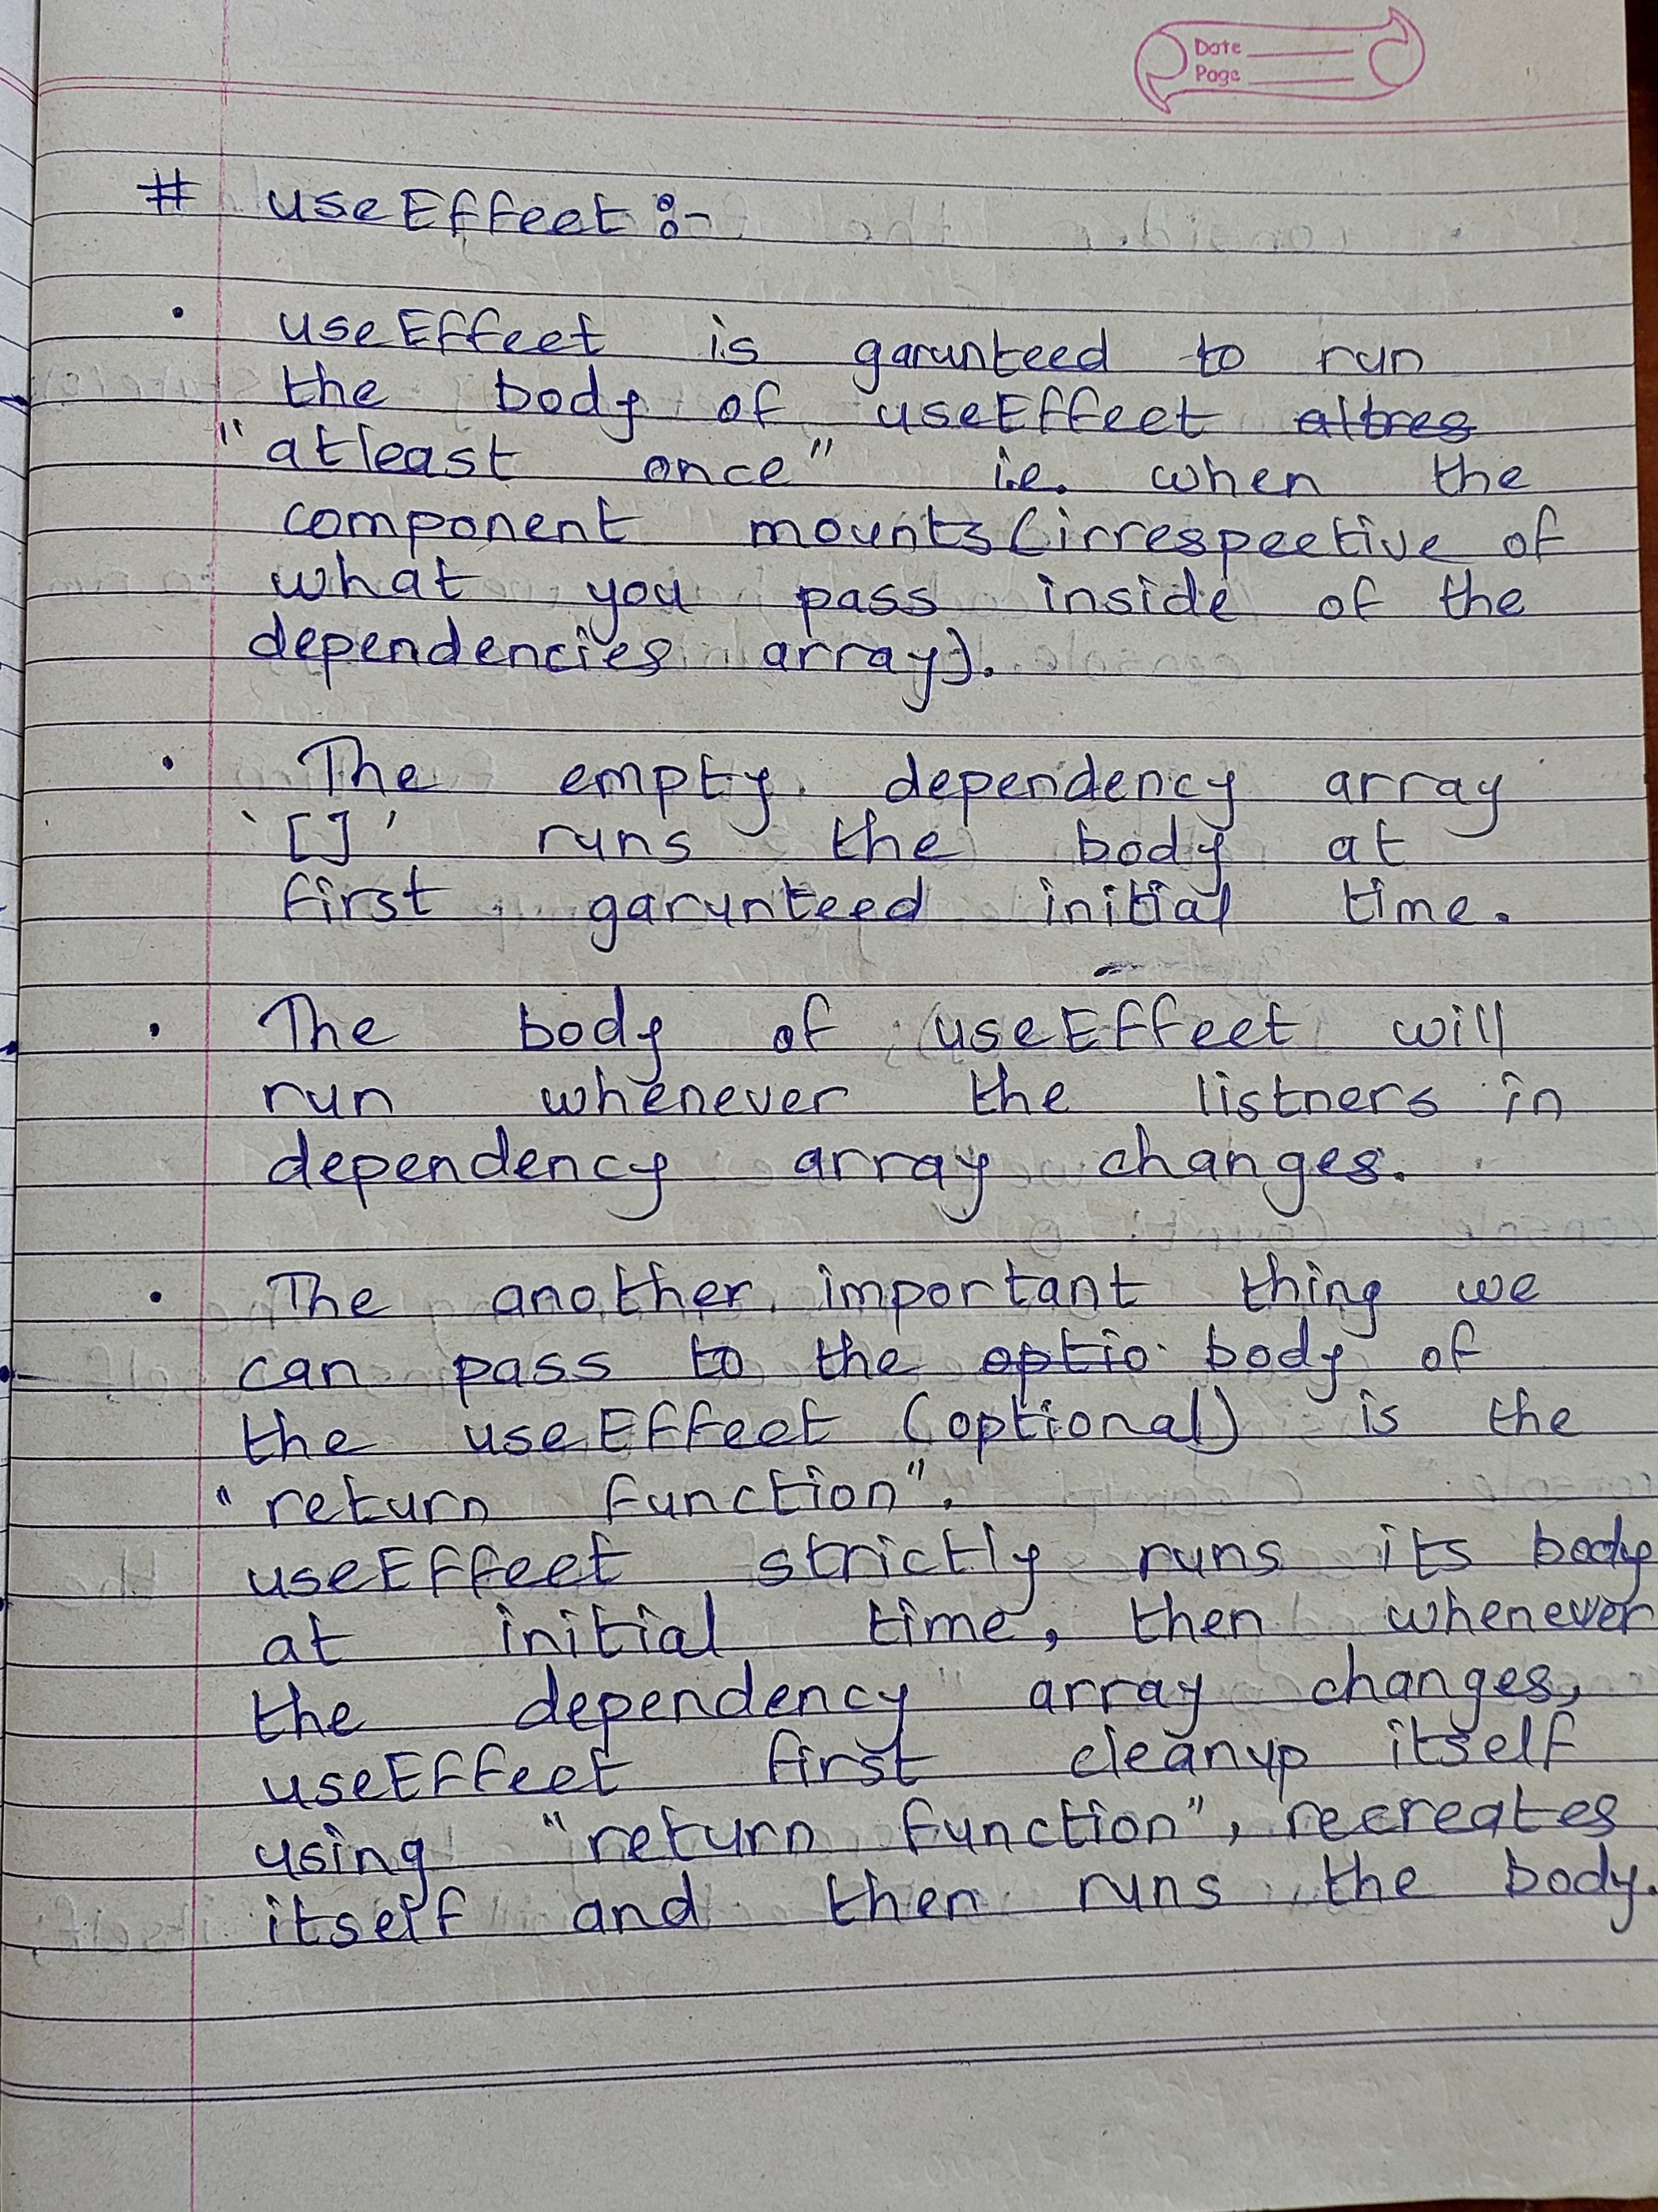 Date
Page
# useEffect :-
• useEffect is garunteed to run
the body of useEffect
"atleast once" i.e. when the
component mounts (irrespective of
what you pass inside of the
dependencies array).
• The empty dependency array
`[]' runs the body at
first garunteed initial time.
• The body of useEffect will
run whenever the listners in
dependency array changes.
• The another important thing we
can pass to the optio body of
the useEffect (optional) is the
"return function".
useEffect strictly runs its body
at initial time, then whenever
the dependency array changes,
useEffect first cleanup itself
using "return function", recreates
itself and then runs the body.